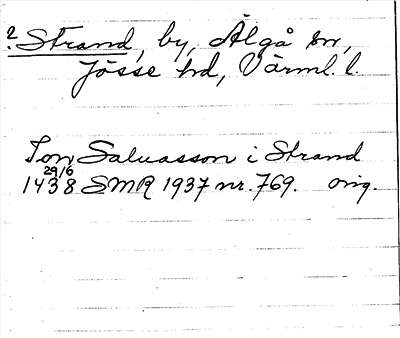 ? Strand, by, Älgå sn,
Jösse hd, Värml. l.
Ion Saluasson i Strand
29/6
1438 SMR 1937 nr. 769. orig.